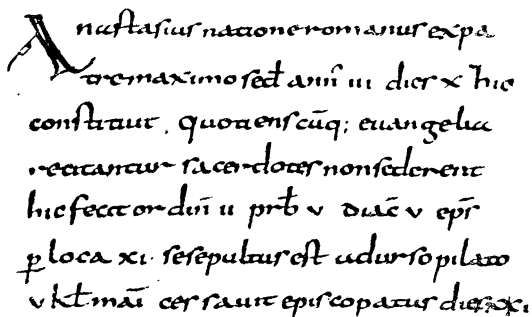 Anustasius natione romanus ex pa
tre maximo sed̄ ann̄ iii dies x hic
constituit. quotienscūq; euangelia
recitantur sacerdotes non sederent
hic fecit ordin̄ ii prb̄ v diac̄ v ep̄s
ꝑ loca xi. se sepultus est ad ursopilato
v kl̄ mai cessauit episcopatus dies xxi